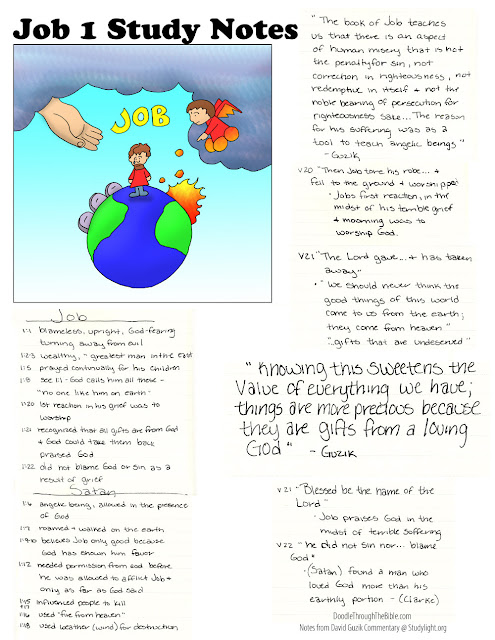 Job 1 Study Notes
JOB
"The book of Job teaches
us that there is an aspect
of human misery that is not
the penalty for sin, not
correction in righteousness, not
redemptive in itself + not the
noble bearing of persecution for
righteousness sake... The reason
for his suffering was as a
tool to teach angelic beings"
- Guzik
v20 "Then Job tore his robe... +
fell to the ground + worshipped
· Jobs first reaction, in the
midst of his terrible grief
+ mourning was to
worship God.
v21 "The Lord gave... + has taken
away"
· "we should never think the
good things of this world
come to us from the earth;
they come from heaven"
"...gifts that are undeserved"
"Knowing this sweetens the
value of everything we have;
things are more precious because
they are gifts from a loving
God" - Guzik
v21 "Blessed be the name of the
Lord"
· Job praises God in the
midst of terrible suffering
v22 "he did not sin nor... blame
God"
· (Satan) found a man who
loved God more than his
earthly portion - (Clarke)
Job
1:1 blameless, upright, God-fearing
turning away from evil
1:2-3 wealthy, "greatest man in the east
1:5 prayed continually for his children
1:8 see 1:1 - God calls him all these -
"no one like him on earth"
1:20 1st reaction in his grief was to
worship
1:21 recognized that all gifts are from God
+ God could take them back
praised God
1:22 did not blame God or sin as a
result of grief
Satan
1:6 angelic being, allowed in the presence
of God
1:7 roamed + walked on the earth
1:9-10 believes Job only good because
God has shown him favor
1:12 needed permission from God before
he was allowed to afflict Job +
only as far as God said
1:15 influenced people to kill
1:17
1:16 used "fire from heaven"
1:18 used weather (wind) for destruction
DoodleThroughTheBible.com
Notes from David Guzik Commentary @ Studylight.org